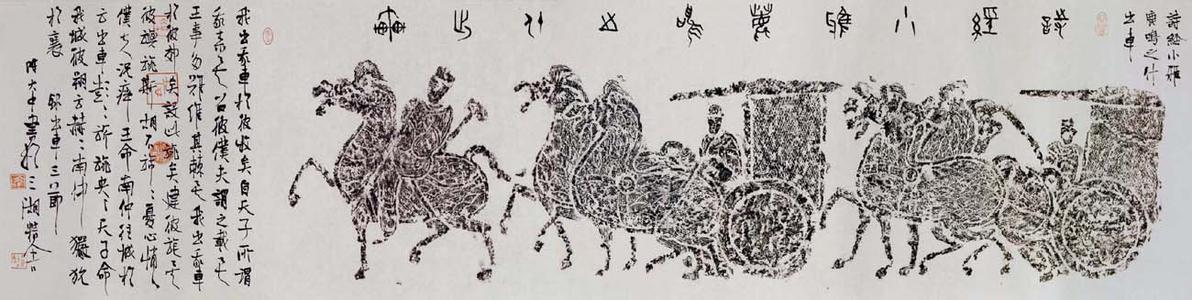 詩經小雅
鹿鳴之什
出車
詩經小雅鹿鳴之什出車
我出我車於彼牧矣自天子所謂
我來矣召彼僕夫謂之載矣
王事多難維其棘矣我出我車
於彼郊矣設此旐矣建彼旄矣
彼旟旐斯胡不旆々憂心悄々
僕夫況瘁王命南仲往城於
方出車彭々旂旐央々天子命
我城彼朔方赫々南仲玁狁
於襄 錄出車三節